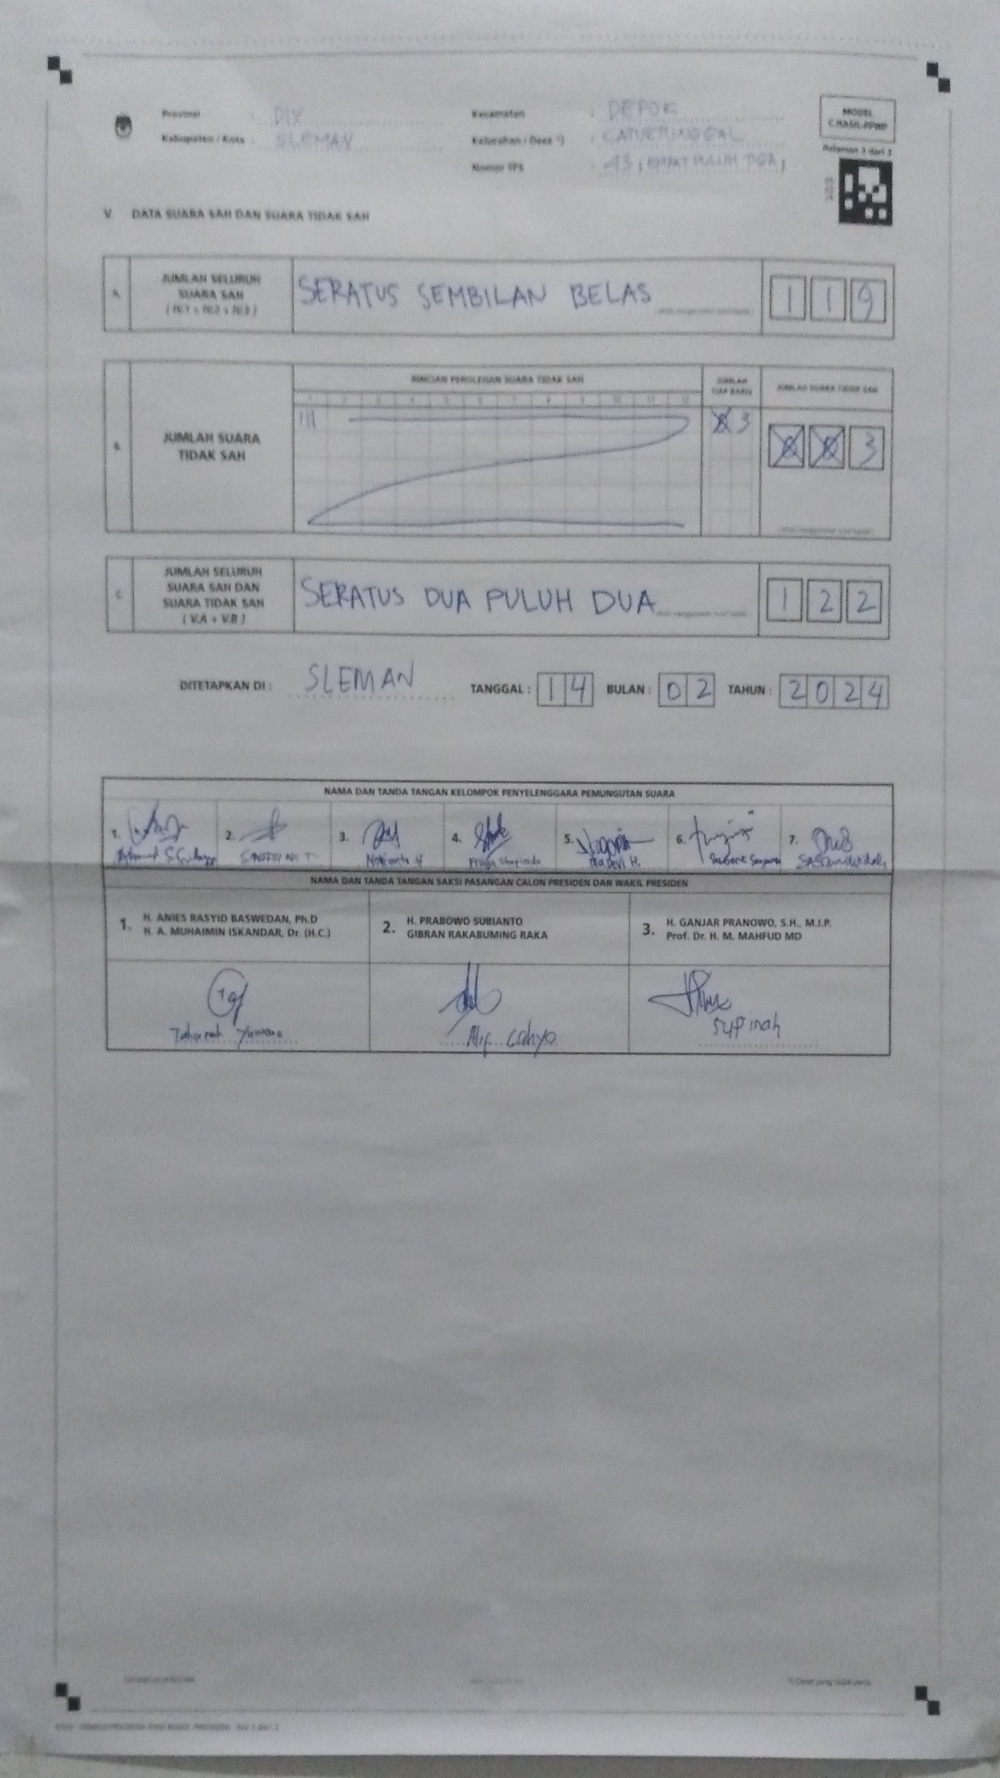 Provinsi : DIY
Kabupaten / Kota : SLEMAN
Kecamatan : DEPOK
Kelurahan / Desa *) : CATURTUNGGAL
Nomor TPS : 43 (EMPAT PULUH TIGA)
MODEL
C.HASIL-PPWP
Halaman 3 dari 3
V. DATA SUARA SAH DAN SUARA TIDAK SAH
A. JUMLAH SELURUH SUARA SAH (IV.1 + IV.2 + IV.3) SERATUS SEMBILAN BELAS 1 1 9
RINCIAN PEROLEHAN SUARA TIDAK SAH
JUMLAH TIAP BARIS
JUMLAH SUARA TIDAK SAH
1 2 3 4 5 6 7 8 9 10 11 12
B. JUMLAH SUARA TIDAK SAH III X 3 X X 3
C. JUMLAH SELURUH SUARA SAH DAN SUARA TIDAK SAH (V.A + V.B) SERATUS DUA PULUH DUA 1 2 2
DITETAPKAN DI : SLEMAN TANGGAL : 14 BULAN : 02 TAHUN : 2024
NAMA DAN TANDA TANGAN KELOMPOK PENYELENGGARA PEMUNGUTAN SUARA
1. 2. 3. 4. 5. 6. 7.
NAMA DAN TANDA TANGAN SAKSI PASANGAN CALON PRESIDEN DAN WAKIL PRESIDEN
1. H. ANIES RASYID BASWEDAN, Ph.D
H. A. MUHAIMIN ISKANDAR, Dr. (H.C.)
2. H. PRABOWO SUBIANTO
GIBRAN RAKABUMING RAKA
3. H. GANJAR PRANOWO, S.H., M.I.P.
Prof. Dr. H. M. MAHFUD MD
Alif Cahyo
Supinah